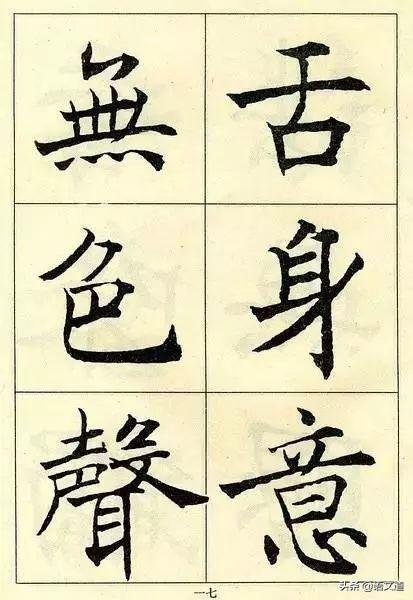 舌身意
無色聲
一七
头条@语文道